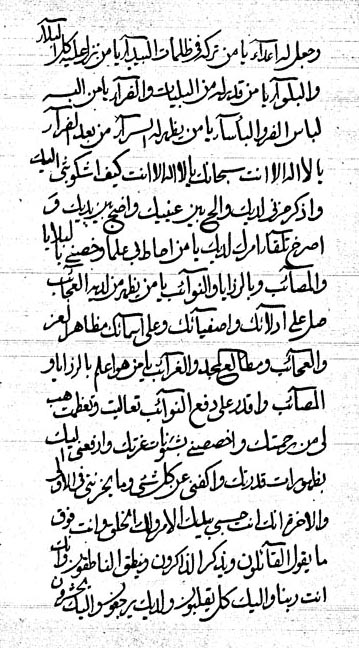 وجعل له اعدآء يا من تركه فى ظلمات البيدآء يا من نزل عليه كل البلآء
والبلوآء يا من قدر له من البليات والقرآء يا من البسه
لباس الضر والبأسآء يا من يظهر له السرآء من بعد الضرآء
يا لا اله الا انت سبحانك يا لا اله الا انت كيف اشكو بثى اليك
واذكر حزنى لديك والح بين عينيك واضج بين يديك و
اصرخ تلقآء امرك لديك يا من احاط بى علما وخصنى بالبلايا
والمصآئب وبالرزايا والنوآئب يا من يظهر من لديه العجآئب
صل على ادلآئك واصفيآئك وعلى اسمآئك مظاهر العز
والعجآئب ومطالع المجد والغرآئب يا من هو اعلم بالرزايا و
المصآئب واقدر على دفع النوآئب تعاليت وتعظمت هب
لى من رحمتك واخصصنى بشئونات عزتك وارفعنى اليك
بظهورات قدرتك واكفنى عن كل شئ وما يحزننى فى الاولى
والاخرة انك انت حسبى بيدك الامر ولك الخلق وانت فوق
ما يقول القآئلون ويذكر الذاكرون وينطق الناطقون وانك
انت ربنا واليك كل يقلبون ولديك يرجعون واليك يحشرون